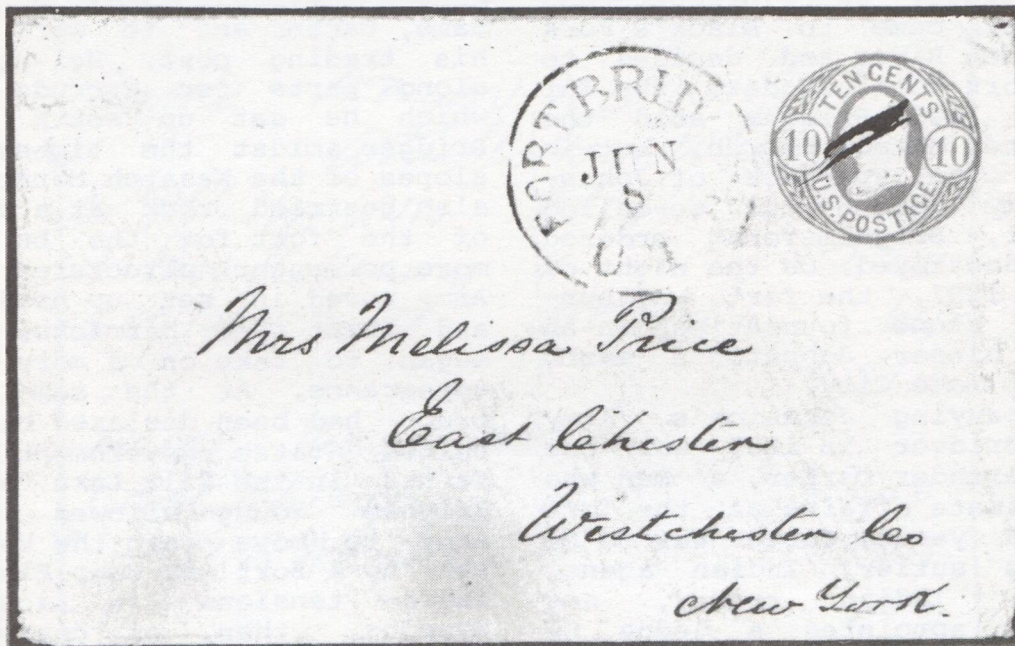 FORT BRID
JAN
8
U.T.
TEN CENTS
10 10
U.S. POSTAGE.
Mrs Melissa Price
East Chester
Westchester Co
New York.